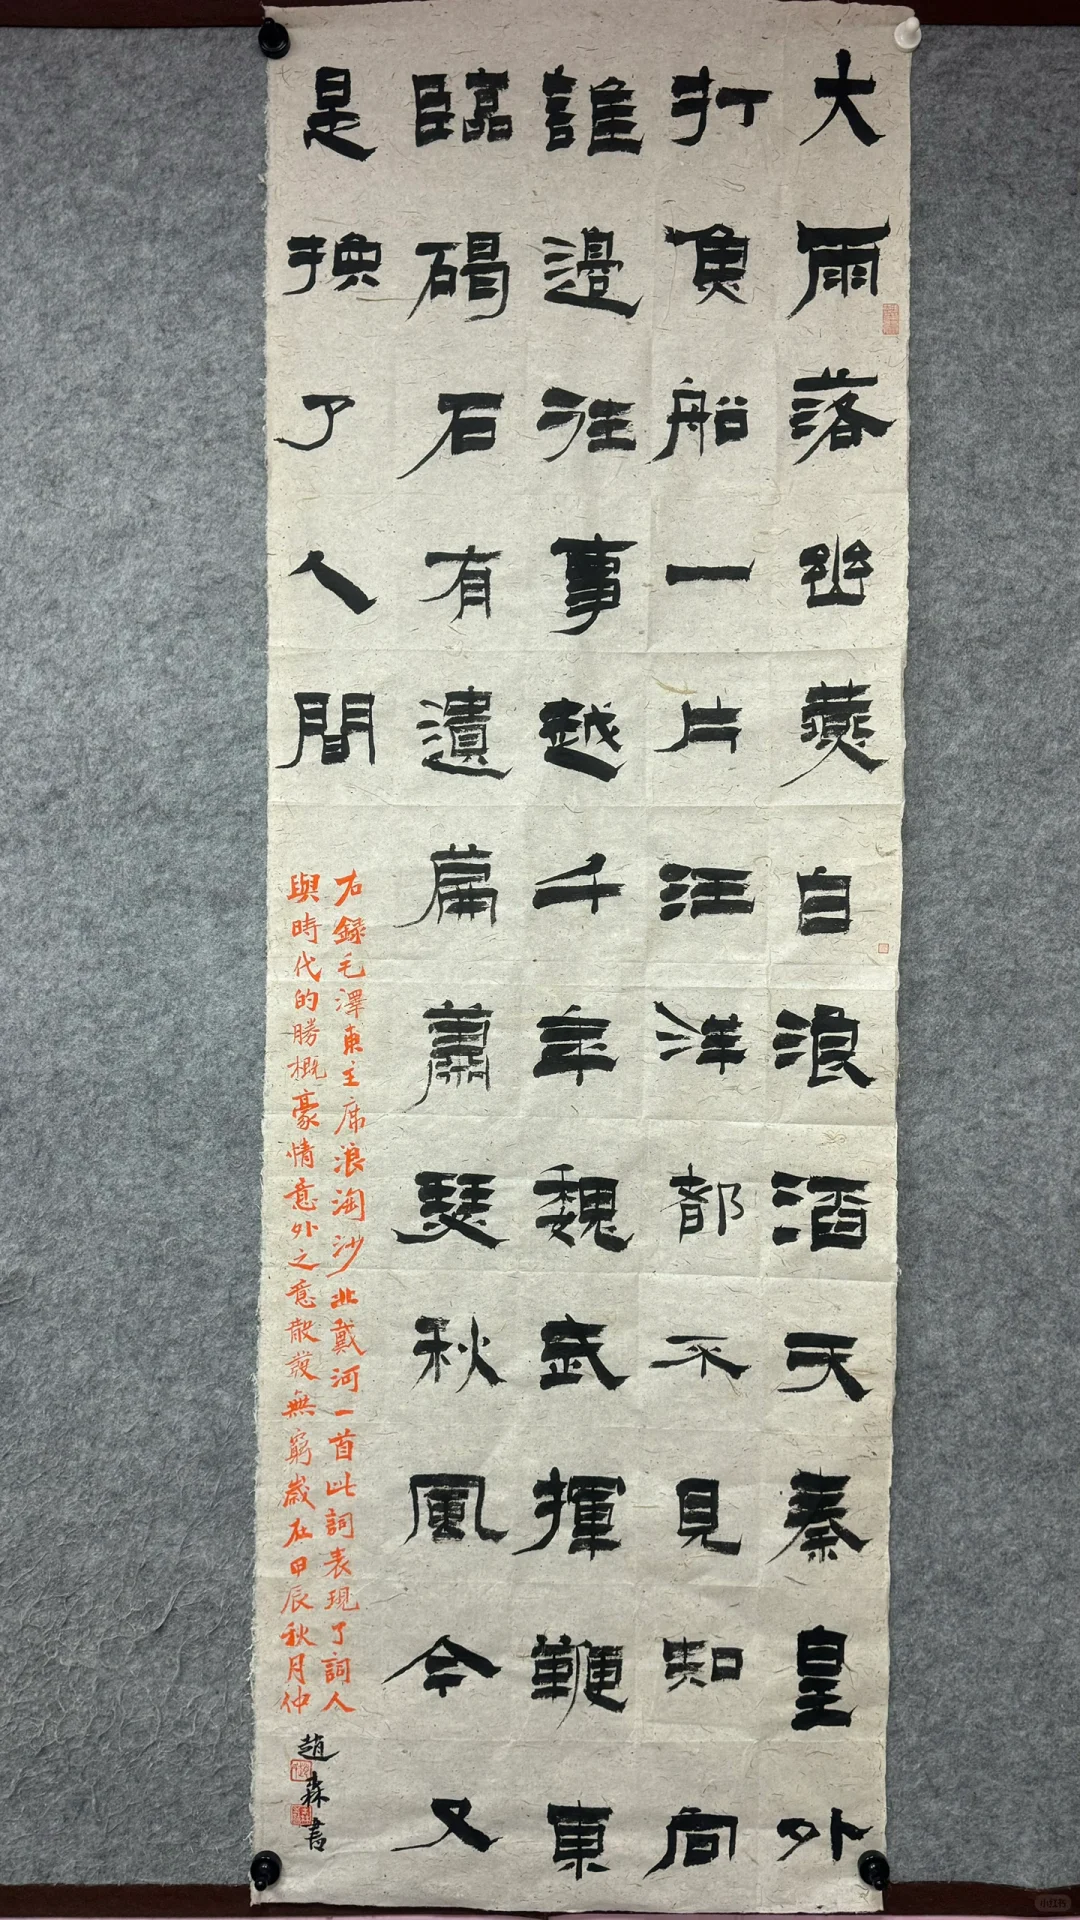 大雨落幽燕自浪滔天秦皇外
打魚船一片汪洋都不見知向
誰邊往事越千年魏武揮鞭東
臨碣石有遺篇蕭瑟秋風今又
是換了人間
右録毛澤東主席浪淘沙北戴河一首此詞表現了詞人
與時代的勝概豪情意外之意散發無窮歲在甲辰秋月仲
趙森書
小红书